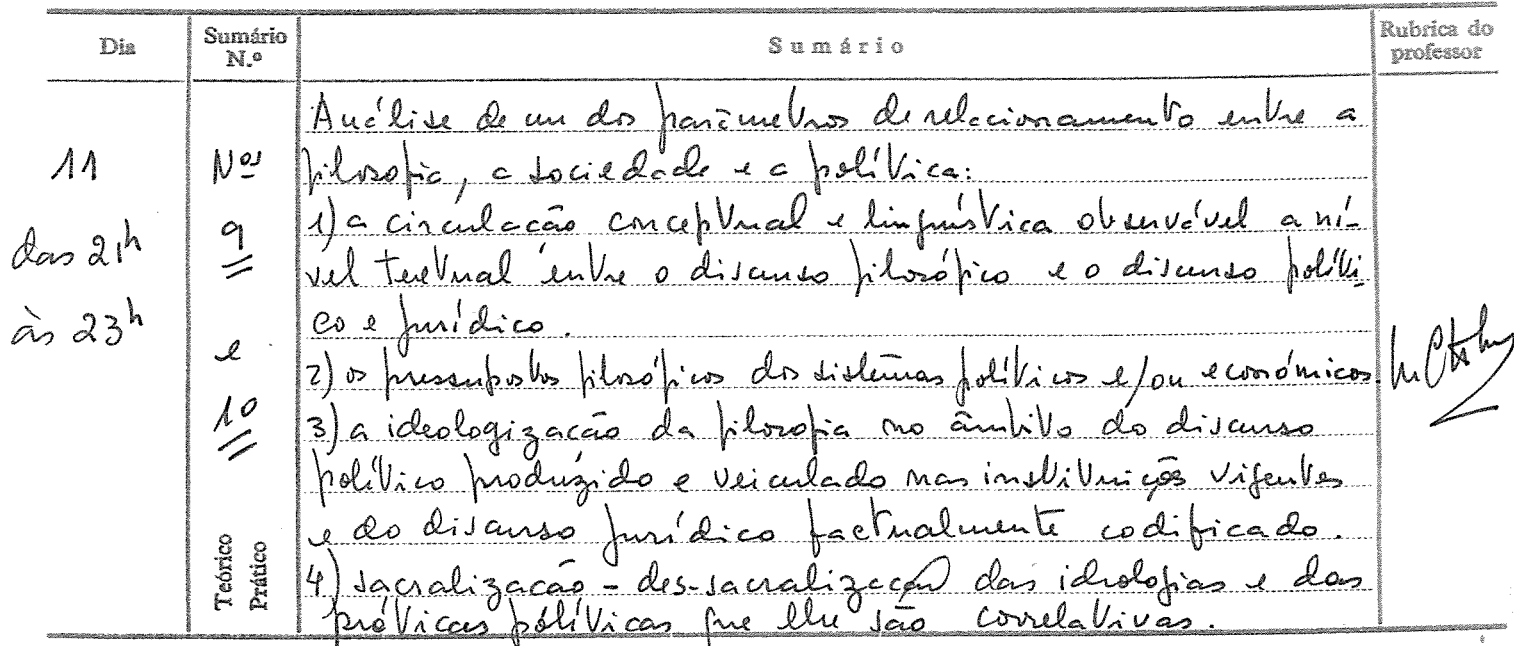 Dia
Sumário N.º
Sumário
Rubrica do professor
11
das 21h
às 23h
Nos
9
e
10
Teórico
Prático
Análise de um dos parâmetros de relacionamento entre a
filosofia, a sociedade e a política:
1) a circulação conceptual e linguística observável a ní-
vel textual entre o discurso filosófico e o discurso políti-
co e jurídico.
2) os pressupostos filosóficos dos sistemas políticos e/ou económicos.
3) a ideologização da filosofia no âmbito do discurso
político produzido e veiculado nas instituições vigentes
e do discurso jurídico factualmente codificado.
4) sacralização - des-sacralização das ideologias e das
práticas políticas que lhe são correlativas.